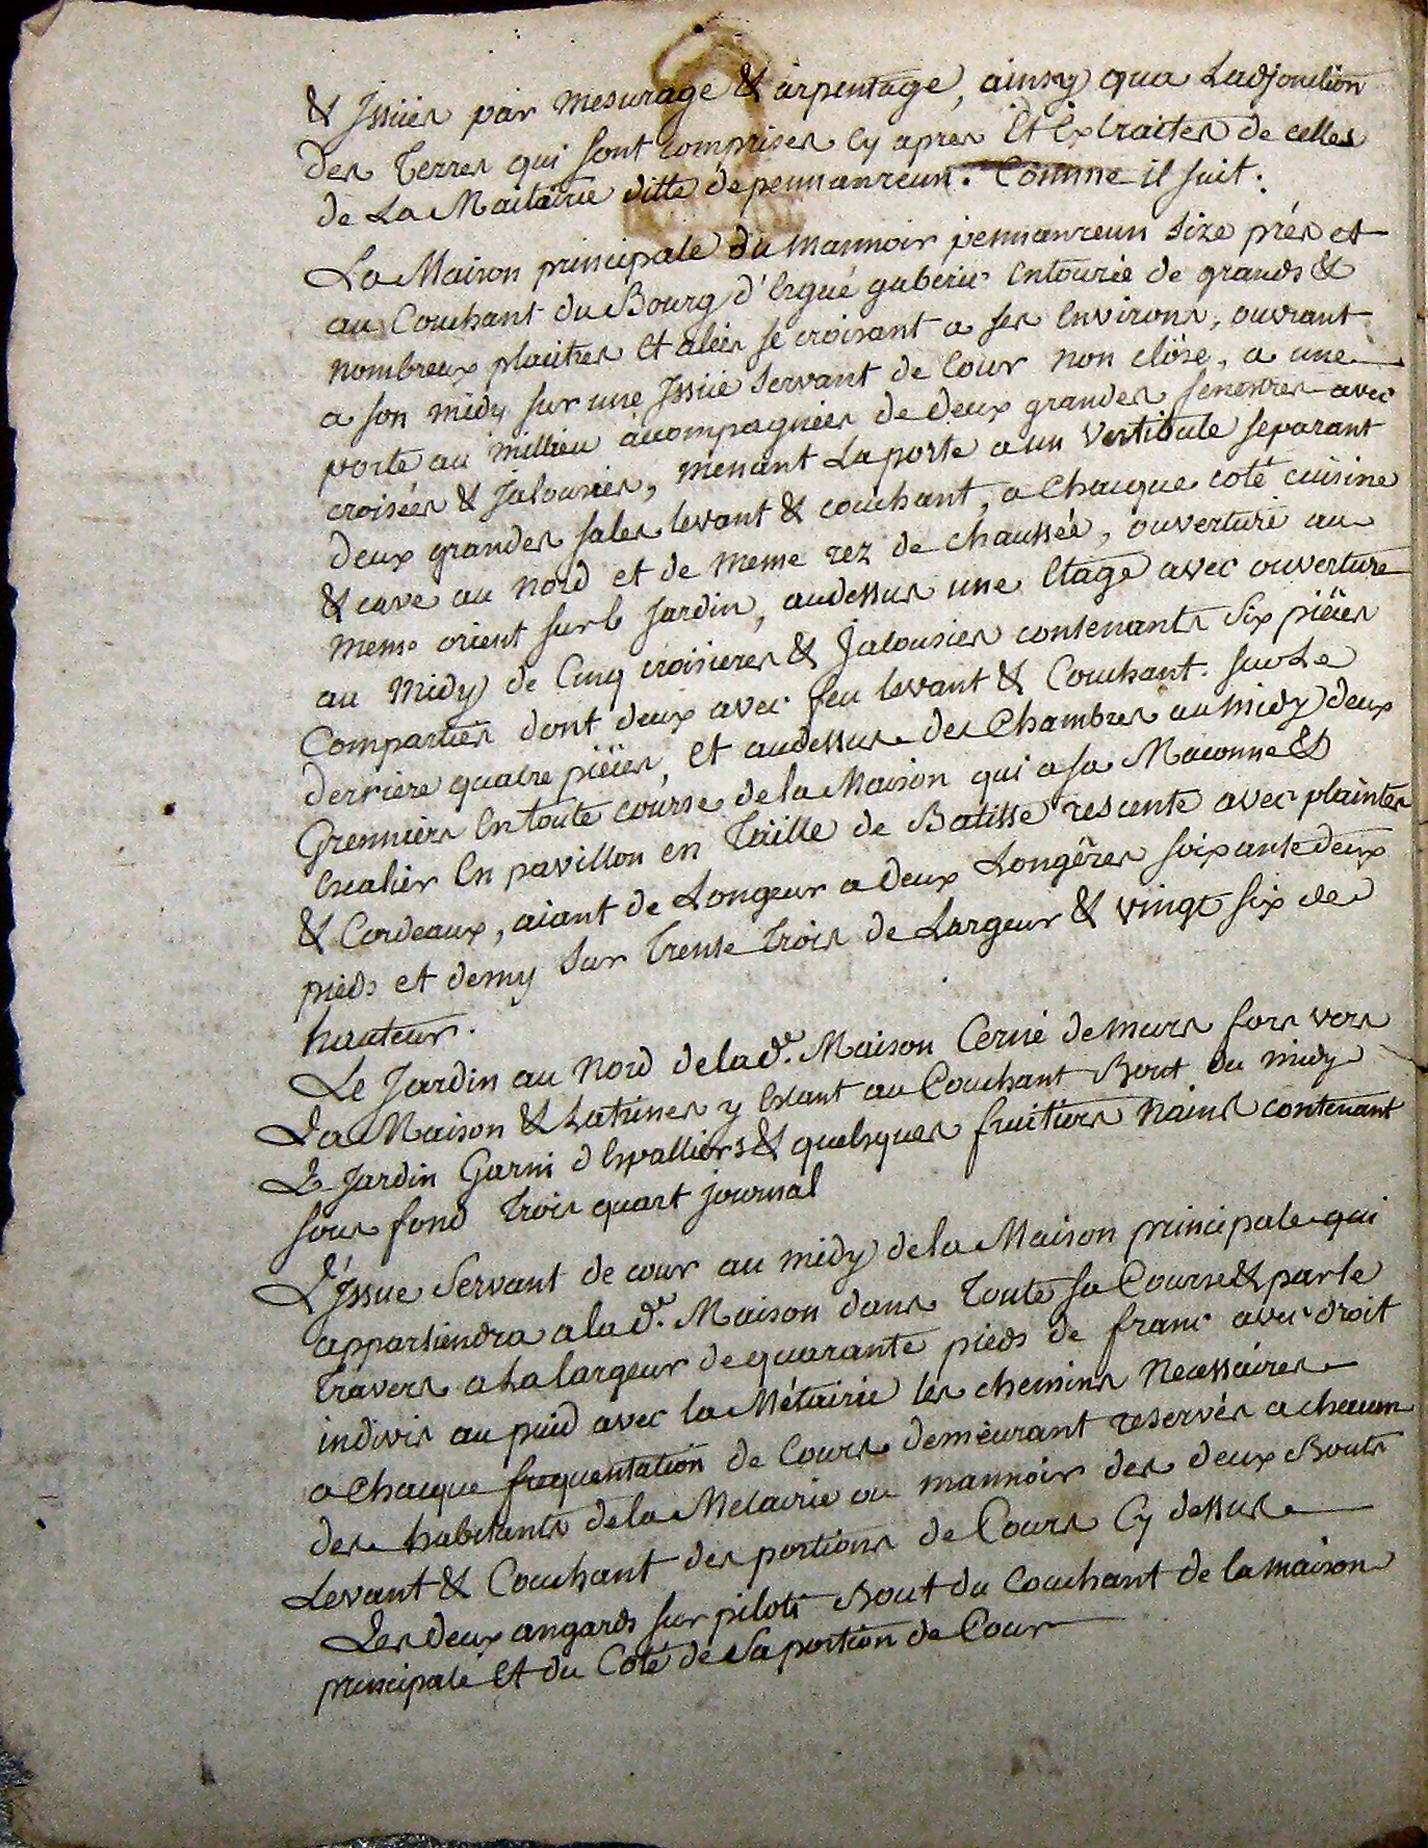 & Jssües par mesurage & arpentage, ainsy qua Ladjonction
des Terres qui sont comprises cy apres Et Extraites de celles
de La Maitairie ditte de pennanreun. Comme il suit.
La Maison principale du mannoir pennanreun size prés et
au Couchant du Bourg d'Ergué gaberic Entourée de grands &
nombreux plaitres Et alées se croisant a ses Environs, ouvrant
a son midy sur une Jssüe servant de Cour non clôse, a une
porte au millieu accompagnées de deux grandes fenestres avec
croisées & Jalousies, menant La porte a un Vestibule separant
deux grandes sales levant & couchant, a Chacque coté cuisine
& cave au nord et de meme rez de chaussée, ouverture au
meme orient sur le Jardin, audessus une Etage avec ouverture
au midy de Cinq croisieres & Jalousies contenants six piéces
Comparties dont deux avec feu levant & Couchant. sur Le
derriere quatre piéces, Et audessus des Chambres au midy deux
Grenniers En toute course de la Maison qui a sa Maconne &
Escalier En pavillon en Taille de Batisse rescente avec plaintes
& Cordeaux, aiant de Longeur a deux Longéres soixante deux
pieds et demy sur Trente Trois de Largeur & vingt six de
hauteur.
Le Jardin au nord de la de. Maison Cerné de murs fors vers
La Maison & Latrines y Etant au Couchant Bout du midy
Le Jardin Garni d'Espalliers & quelsques fruitiers nains contenant
sous fond Trois quart journal
L'Jssue servant de cour au midy de la Maison principale qui
appartiendra a la de. Maison dans Toute sa Course & par le
Travers a La largeur de quarante pieds de franc avec droit
indivis au puid avec la Métairie les chemins necessaires
a Chacque frequentation de Cours demeurant reservés a chacun
des habitants de la Metairie ou mannoir des deux Bouts
Levant & Couchant des portions de Cours Cy dessus
Les deux angards sur pilots Bout du Couchant de la maison
principale Et du Coté de sa portion de Cour